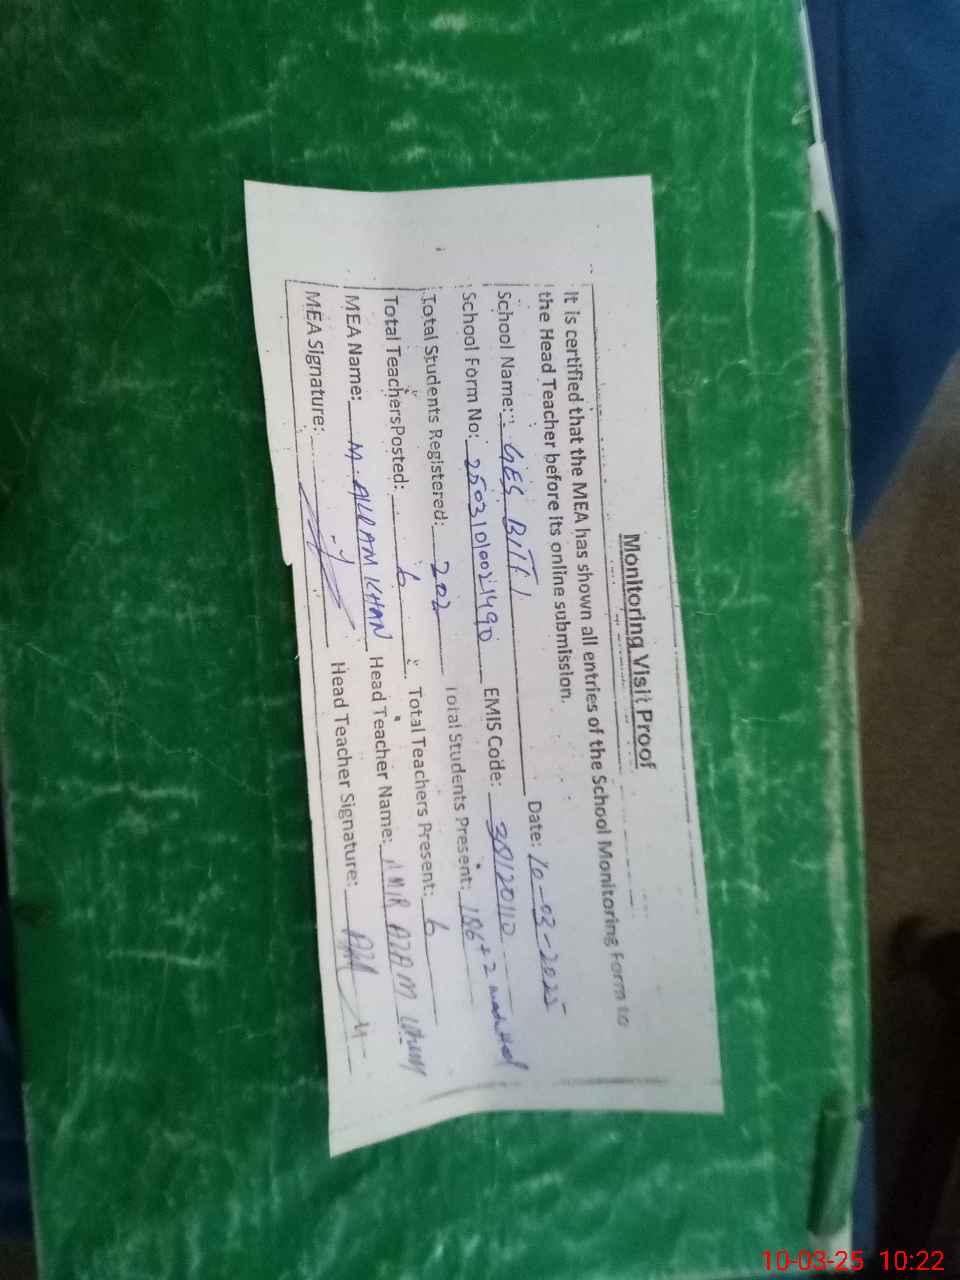 Monitoring Visit Proof
It is certified that the MEA has shown all entries of the School Monitoring Form to
the Head Teacher before its online submission.
School Name: Date: 10-03-2025
School Form No: 25031010021490 EMIS Code:
Total Students Registered: 202 Total Students Present: 186+2
Total TeachersPosted: 6 Total Teachers Present: 6
MEA Name: M. KHAN Head Teacher Name: AZAM
MEA Signature: Head Teacher Signature:
10-03-25 10:22